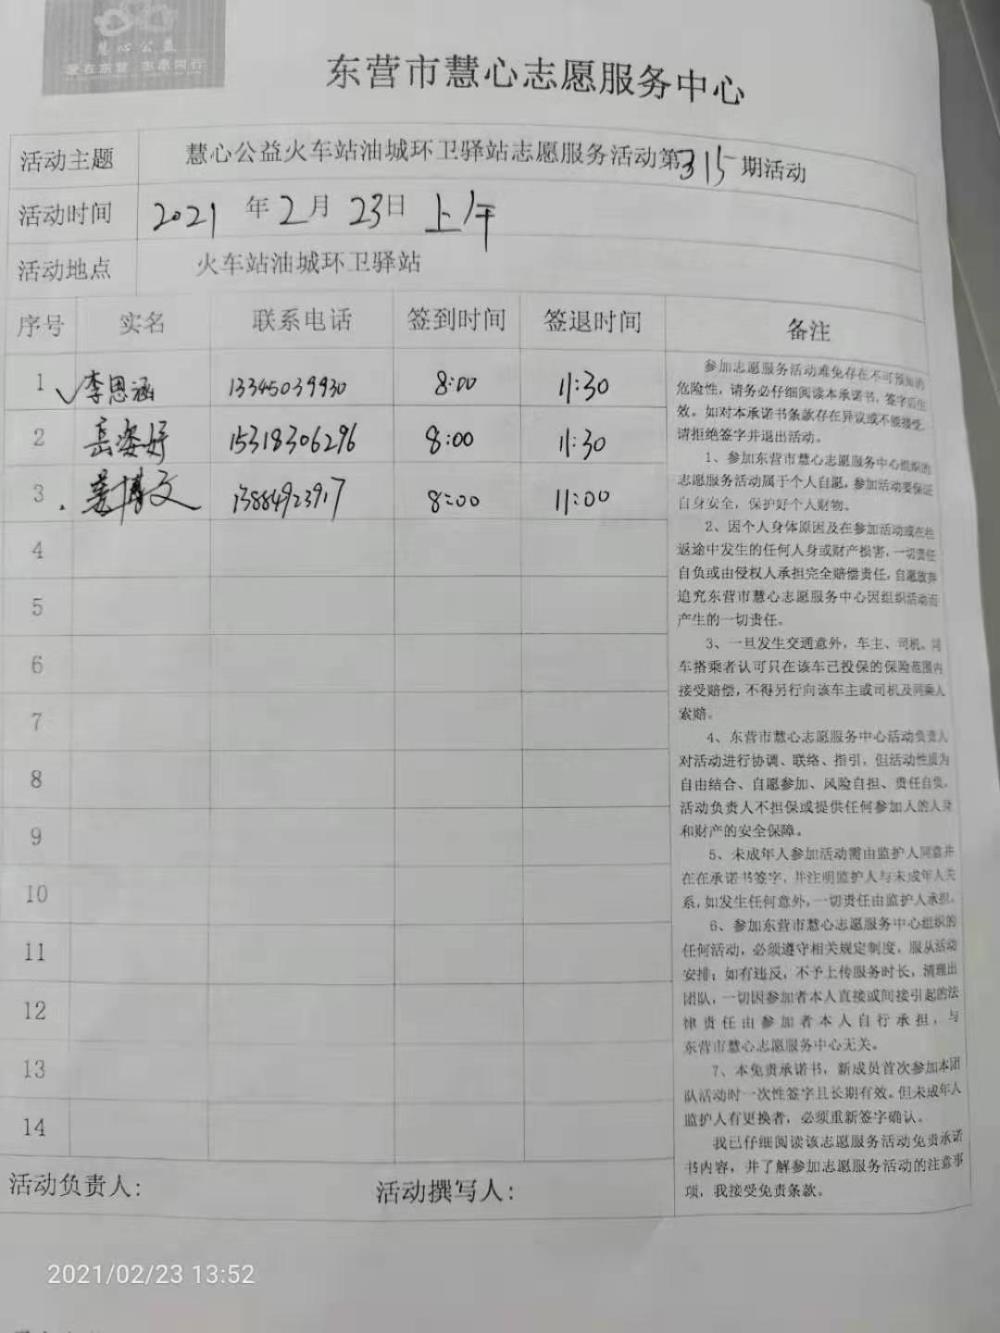 慧心公益
爱在东营 志愿同行
东营市慧心志愿服务中心
活动主题 慧心公益火车站油城环卫驿站志愿服务活动第315期活动
活动时间 2021年2月23日上午
活动地点 火车站油城环卫驿站
序号 实名 联系电话 签到时间 签退时间 备注
1 李思涵 13345039930 8:00 11:30
2 岳姿妤 15318306296 8:00 11:30
3 姜博文 13884923917 8:00 11:00
4
5
6
7
8
9
10
11
12
13
14
参加志愿服务活动难免存在不可预知的
危险性,请务必仔细阅读本承诺书,签字后生
效。如对本承诺书条款存在异议或不能接受,
请拒绝签字并退出活动。
1、参加东营市慧心志愿服务中心组织的
志愿服务活动属于个人自愿,参加活动要保证
自身安全,保护好个人财物。
2、因个人身体原因及在参加活动或在往
返途中发生的任何人身或财产损害,一切责任
自负或由侵权人承担完全赔偿责任,自愿放弃
追究东营市慧心志愿服务中心因组织活动而
产生的一切责任。
3、一旦发生交通意外,车主、司机、同
车搭乘者认可只在该车已投保的保险范围内
接受赔偿,不得另行向该车主或司机及同乘人
索赔。
4、东营市慧心志愿服务中心活动负责人
对活动进行协调、联络、指引,但活动性质为
自由结合、自愿参加、风险自担、责任自负。
活动负责人不担保或提供任何参加人的人身
和财产的安全保障。
5、未成年人参加活动需由监护人同意并
在在承诺书签字,并注明监护人与未成年人关
系,如发生任何意外,一切责任由监护人承担。
6、参加东营市慧心志愿服务中心组织的
任何活动,必须遵守相关规定制度,服从活动
安排;如有违反,不予上传服务时长,清理出
团队,一切因参加者本人直接或间接引起的法
律责任由参加者本人自行承担,与
东营市慧心志愿服务中心无关。
7、本免责承诺书,新成员首次参加本团
队活动时一次性签字且长期有效。但未成年人
监护人有更换者,必须重新签字确认。
我已仔细阅读该志愿服务活动免责承诺
书内容,并了解参加志愿服务活动的注意事
项,我接受免责条款。
活动负责人: 活动撰写人:
2021/02/23 13:52